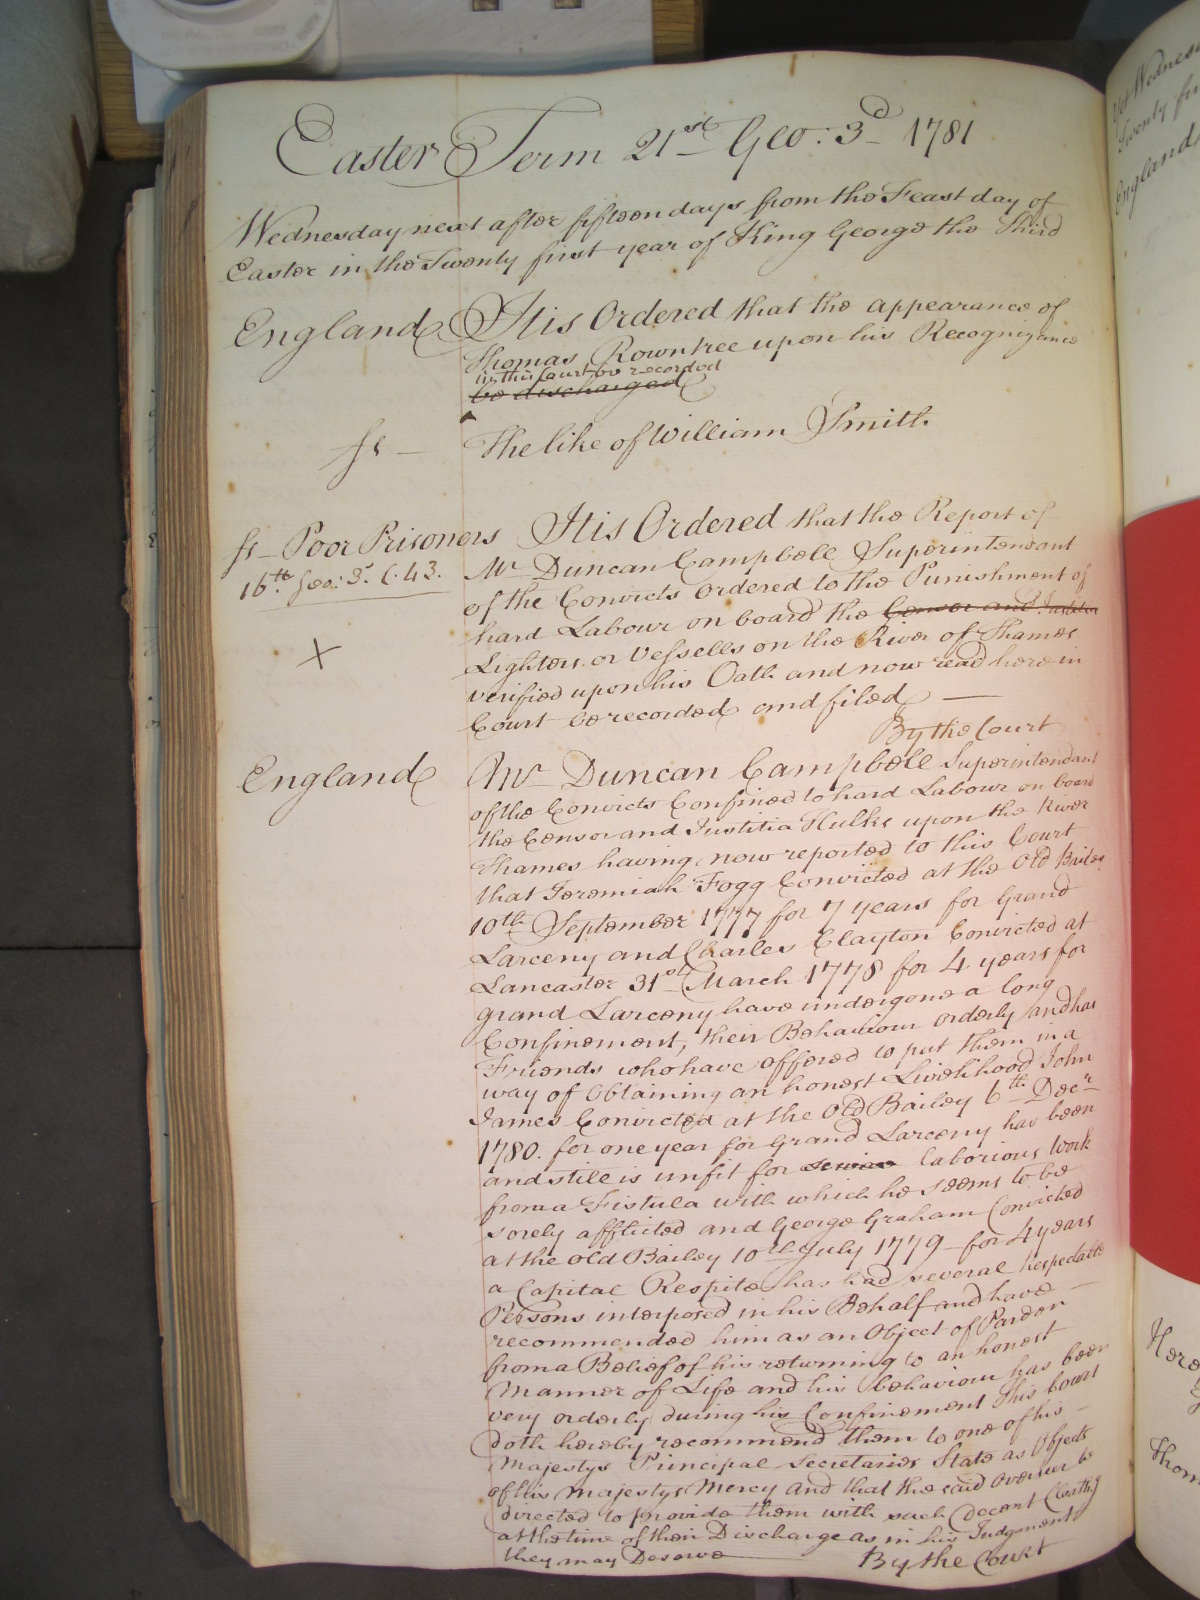 Easter Term 21st Geo: 3d 1781
Wednesday next after fifteen days from the Feast day of
Easter in the Twenty first year of King George the Third
England It is Ordered that the appearance of
Thomas Rowntree upon his Recognizance
in this Court be recorded
be discharged
fs — The like of William Smith
fs — Poor Prisoners It is Ordered that the Report of
16th Geo: 3d C. 43. Mr Duncan Campbell Superintendant
of the Convicts ordered to the Punishment of
hard Labour on board the Censor and Justitia
X
Lighters or Vessells on the River of Thames
verified upon his Oath and now read here in
Court be recorded and filed —
By the Court
England Mr Duncan Campbell Superintendant
of the Convicts Confined to hard Labour on board
the Censor and Justitia Hulks upon the River
Thames having now reported to this Court
that Jeremiah Fogg Convicted at the Old Bailey
10th September 1777 for 7 years for Grand
Larceny and Charles Clayton Convicted at
Lancaster 31st March 1778 for 4 years for
grand Larceny have undergone a long
Confinement, their Behaviour orderly and has
Friends who have offered to put them in a
way of Obtaining an honest Livelihood John
James Convicted at the Old Bailey 6th Decr
1780. for one year for Grand Larceny has been
and still is unfit for service laborious Work
from a Fistula with which he seems to be
sorely afflicted and George Graham Convicted
at the Old Bailey 10th July 1779 — for 4 years
a Capital Respite has had several respectable
Persons interposed in his Behalf and have —
recommended him as an Object of Pardon
from a Belief of his returning to an honest
Manner of Life and his behaviour has been
very orderly during his Confinement This Court
doth hereby recommend them to one of his —
Majestys Principal Secretaries State as Objects
of his Majestys Mercy and that the said Overseer be
directed to provide them with such Decent Clothing
at the time of their Discharge as in his Judgment
they may Deserve — By the Court
Yet Wednes
Twenty fir
England
Here
Thom